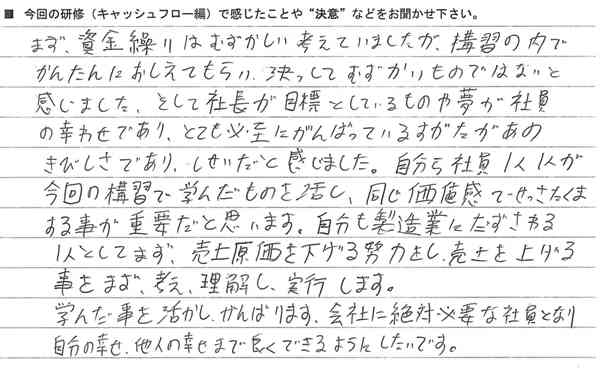 ■ 今回の研修（キャッシュフロー編）で感じたことや“決意”などをお聞かせ下さい。
まず、資金繰りはむずかしい考えていましたが、構習の内で
かんたんにおしえてもらい、決ってむずかいものではないと
感じました、そして社長が目標としているものや夢が社員
の幸わせであり、とても必至にがんばっているすがたがあの
きびしさであり、しせいだと感じました。自分ら社員1人1人が
今回の構習で学んだものを活し、同じ価値感でせっさたくま
する事が重要だと思います。自分も製造業にたずさわる
1人としてまず、売上原価を下げる努力をし、売上を上げる
事をまず、考え、理解し、実行します。
学んだ事を活かし、がんばります、会社に絶対必要な社員となり
自分の幸せ、他人の幸せまで良くできるようにしたいです。